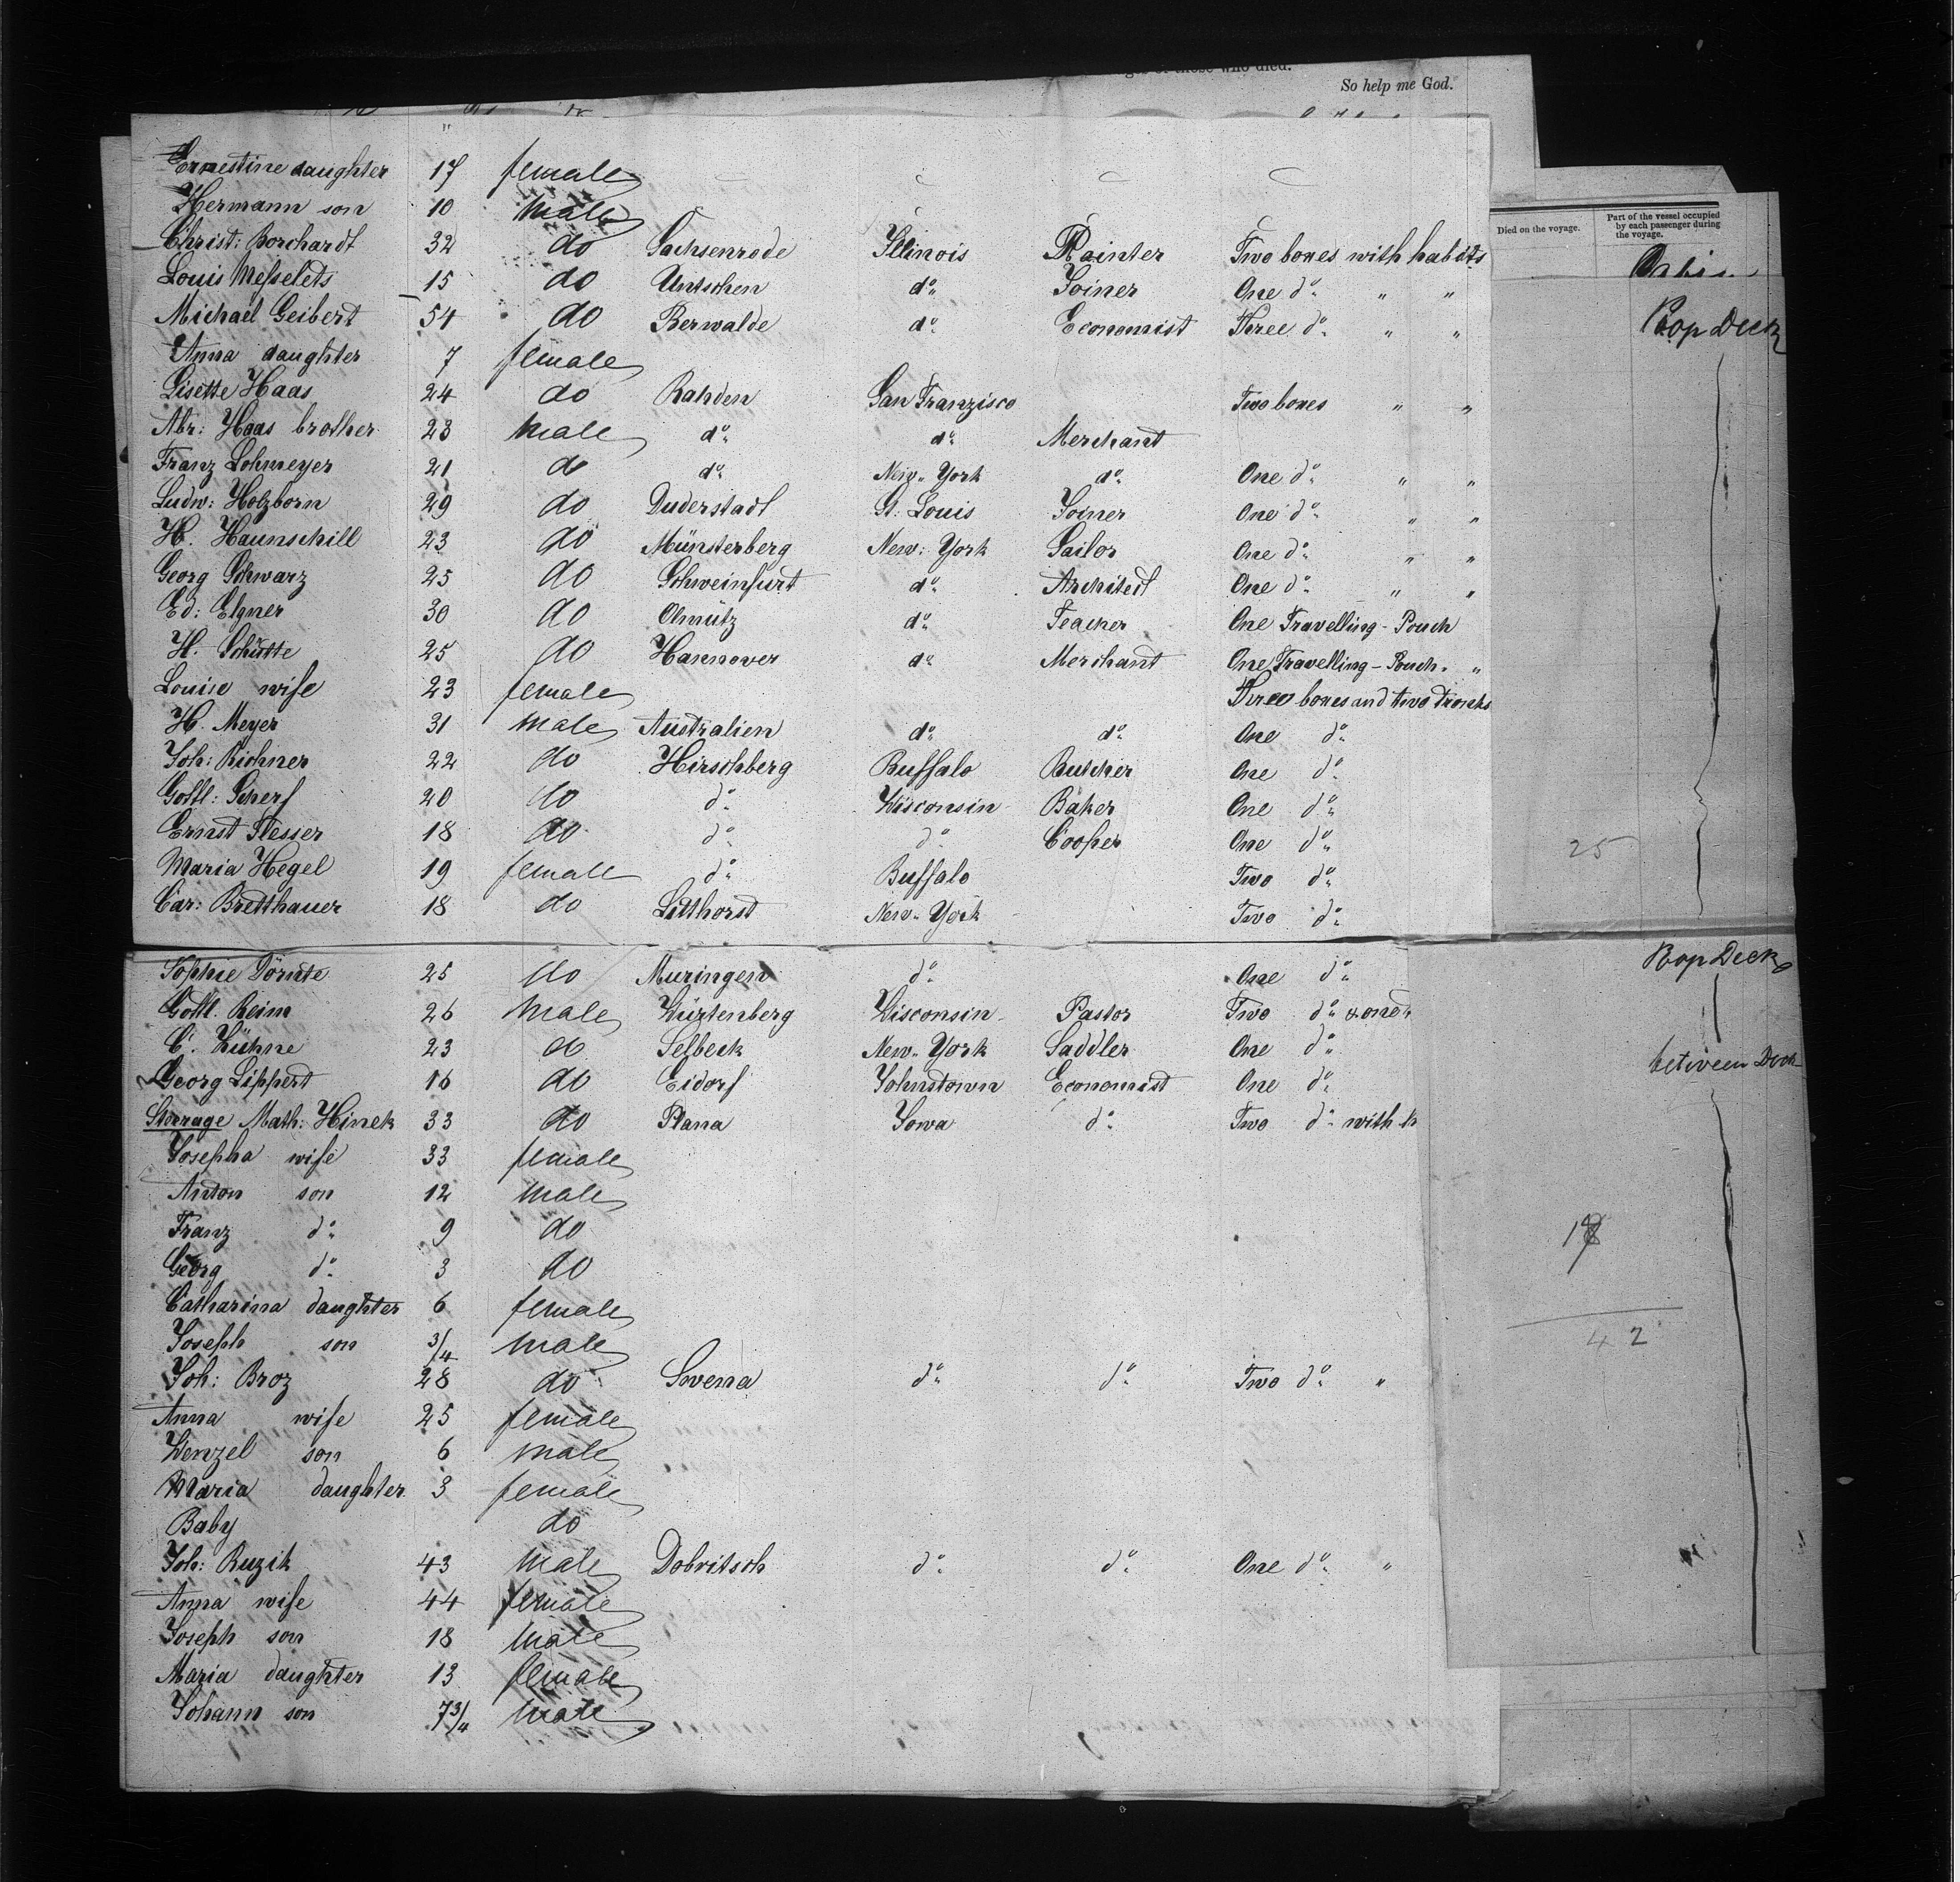 So help me God.
Died on the voyage.
Part of the vessel occupied
by each passenger during
the voyage.
Ernestine daughter 17 female
Hermann son 10 male
Christ: Borchardt 32 do Sachsenrode Illinois Painter Two boxes with habits
Louis 15 do Untschen do Joiner One do " "
Michael Geibert 54 do Berwalde do Economist Three do " "
Poop Deck
Anna daughter 7 female
Lisette Haas 24 do Rahden San Franzisco Two boxes " "
Abr: Haas brother 23 male do do Merchant
Franz Lohmeyer 21 do do New-York do One do " "
Ludw: Holzborn 29 do Duderstadt St. Louis Joiner One do " "
H. Haunschill 23 do Münsterberg New-York Sailor One do " "
Georg Schwarz 25 do Schweinfurt do Architect One do " "
Ed: Elgner 30 do Olmütz do Teacher One Travelling-Pouch
H. Schütte 25 do Hannover do Merchant One Travelling-Pouch. "
Louise wife 23 female Three boxes and two trunks
H. Meyer 31 male Australien do do One do
Joh: Richner 22 do Hirschberg Buffalo Butcher One do
Gottl: Scherf 20 do do Wisconsin Baker One do
Ernst Flesser 18 do do do Cooper One do
25
Maria Hegel 19 female do Buffalo Two do
Car: Bretthauer 18 do Lüthorst New-York Two do
Sophie Dörnte 25 do Muringen do One do
Poop Deck
Gottl. Reim 26 male Würtenberg Wisconsin Pastor Two do & one
C. Kühne 23 do Selbeck New-York Saddler One do
between Deck
Georg Lippert 16 do Eidorf Johnstown Economist One do
Steerage Math: Hinek 33 do Plana Iowa do Two do with h
Josepha wife 33 female
Anton son 12 male
Franz do 9 do
Georg do 3 do
Catharina daughter 6 female
Joseph son 3/4 male
42
Joh: Broz 28 do Swena do do Two do "
Anna wife 25 female
Wenzel son 6 male
Maria daughter 3 female
Baby do
Joh: Ruzik 43 male Dobritsch do do One do "
Anna wife 44 female
Joseph son 18 male
Maria daughter 13 female
Johann son 7 3/4 male